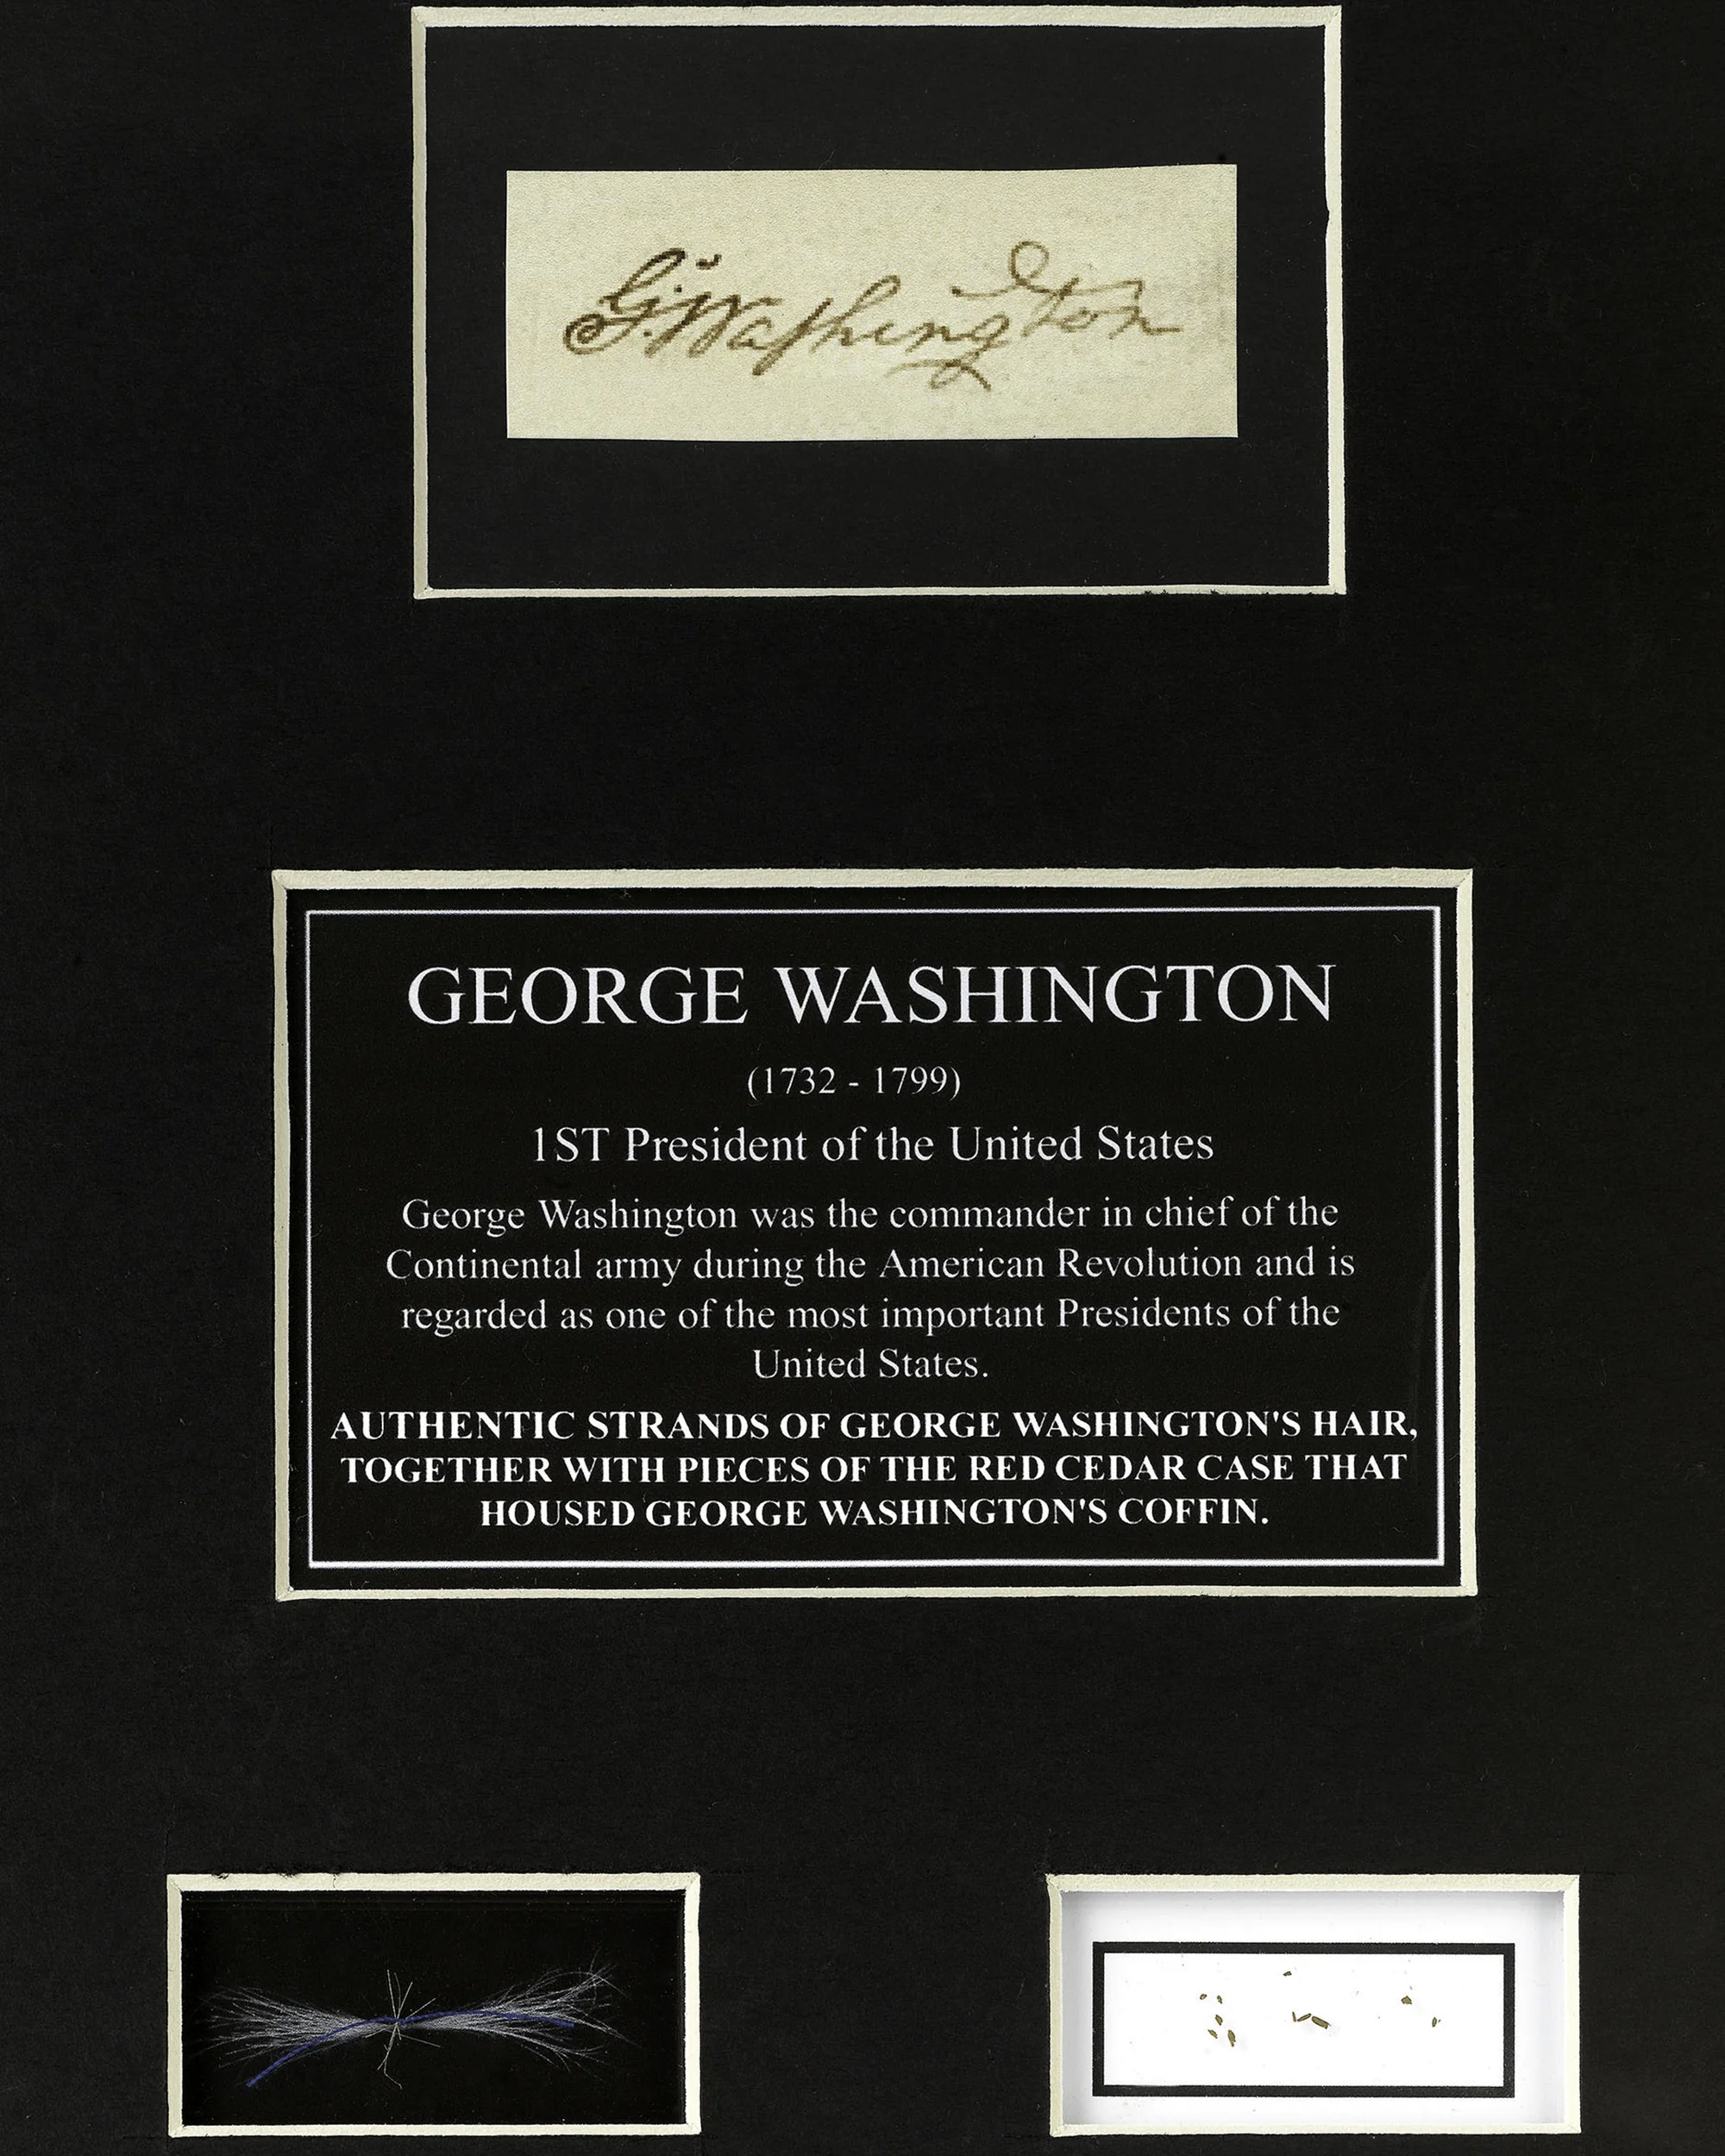 G:Washington
GEORGE WASHINGTON
(1732 - 1799)
1ST President of the United States
George Washington was the commander in chief of the
Continental army during the American Revolution and is
regarded as one of the most important Presidents of the
United States.
AUTHENTIC STRANDS OF GEORGE WASHINGTON'S HAIR,
TOGETHER WITH PIECES OF THE RED CEDAR CASE THAT
HOUSED GEORGE WASHINGTON'S COFFIN.